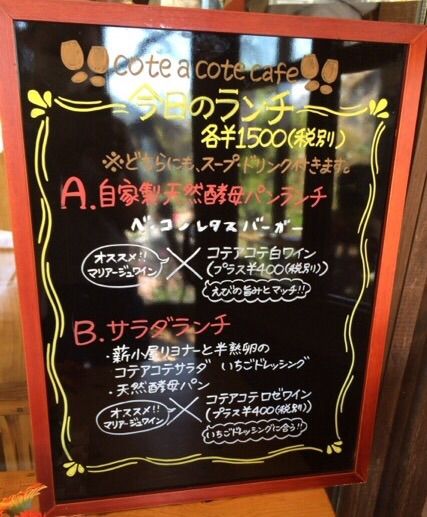 cote a cote cafe
今日のランチ
各¥1500(税別)
※どちらにも、スープ・ドリンク付きます。
A.自家製天然酵母パンランチ
ベーコンレタスバーガー
オススメ!!
マリアージュワイン
×
コテアコテ白ワイン
(プラス¥400(税別))
えびの旨みとマッチ!!
B.サラダランチ
・薪小屋リヨナーと半熟卵の
コテアコテサラダ いちごドレッシング
・天然酵母パン
オススメ!!
マリアージュワイン
×
コテアコテロゼワイン
(プラス¥400(税別))
いちごドレッシングに合う!!